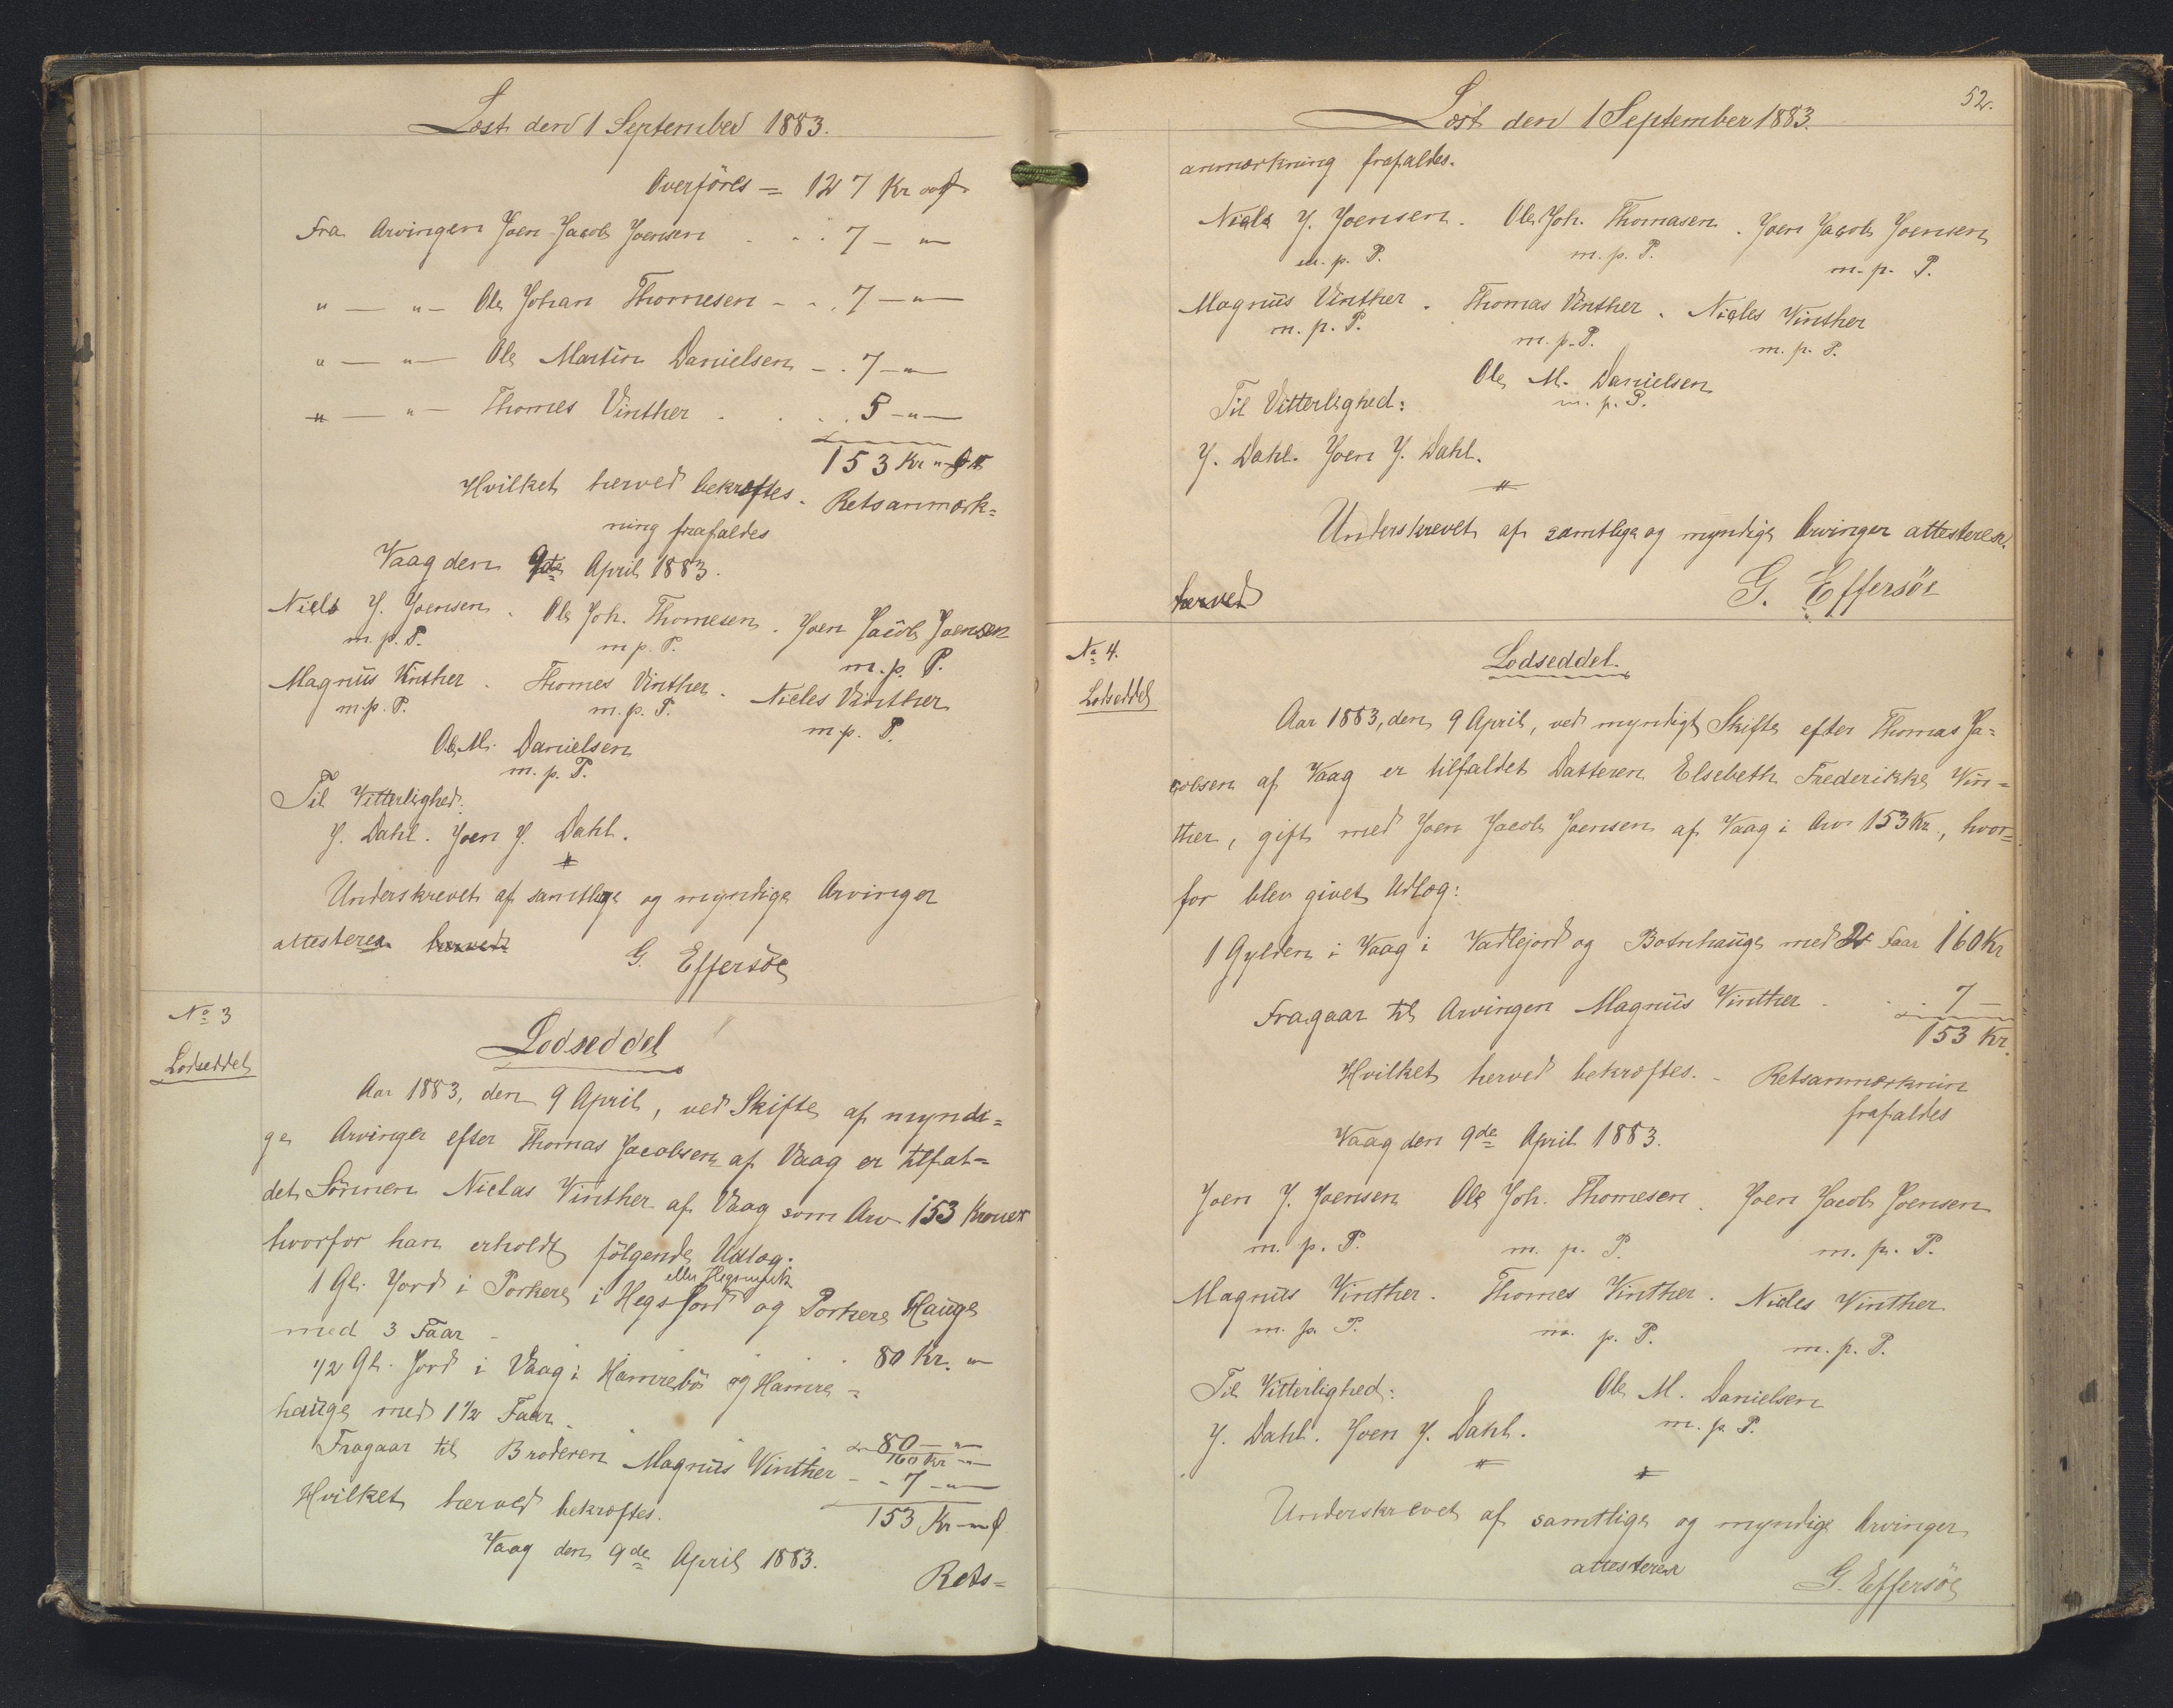 Læst den 1 September 1883.
Overføres = 127 Kr
Fra Arvingen Joen Jacob Joensen . . . 7 — " —
" — " — Ole Johan Thomesen - - . 7 — " —
" — " — Ole Martin Danielsen - . 7 — " —
" — " — Thomes Vinther . . . . 5 — " —
153 Kr "
Hvilket herved bekræftes. Retsanmærk=
ning frafaldes
Vaag den 9de April 1883.
Niels J. Joensen . Ole Joh. Thomesen . Joen Jacob Joensen
m. p. P. m. p. P. m. p. P.
Magnus Vinther . Thomes Vinther . Nicles Vinther
m. p. P. m. p. P. m. p. P.
Ole M. Danielsen
m. p. P.
Til Vitterlighed:
J. Dahl. Joen J. Dahl.
Underskrevet af samtlige og myndige Arvinger
attesteres herved
G. Effersøe
No 3
Lodseddel
Lodseddel
Aar 1883, den 9 April, ved Skifte af myndi=
ge Arvinger efter Thomas Jacobsen af Vaag er tilfal=
det Sønnen Niclas Vinther af Vaag som Arv 153 Kroner
hvorfor han erholdt følgende Udlæg:
1 Gl. Jord i Porkere i Hegsjord og Porkere Hauge
med 3 Faar . . . . 80 Kr. "
1/2 Gl. Jord i Vaag i Hamrebø og Hamre=
hauge med 1 1/2 Faar . . . 80 — " —
160 Kr — " —
Fragaar til Broderen Magnus Vinther - - 7 — " —
153 Kr — "
Hvilket herved bekræftes.
Vaag den 9de April 1883.
Rets=
52.
Læst den 1 September 1883.
anmærkning frafaldes.
Niels J. Joensen . Ole Joh. Thomasen . Joen Jacob Joensen
m. p. P. m. p. P. m. p. P.
Magnus Vinther . Thomas Vinther . Nicles Vinther
m. p. P. m. p. P. m. p. P.
Ole M. Danielsen
m. p. P.
Til Vitterlighed:
J. Dahl. Joen J. Dahl.
Underskrevet af samtlige og myndige Arvinger attesteres.
herved
G. Effersøe
No 4.
Lodseddel
Lodseddel.
Aar 1883, den 9 April, ved myndigt Skifte efter Thomas Ja=
cobsen af Vaag er tilfaldet Datteren Elsebeth Frederikke Vin=
ther, gift med Joen Jacob Joensen af Vaag i Arv 153 Kr, hvor=
for blev givet Udlæg:
1 Gylden i Vaag i Vadlejord og Botnhauge med Faar 160 Kr
Fragaar til Arvingen Magnus Vinther . . . 7 —
153 Kr.
Hvilket herved bekræftes. - Retsanmærknin
frafaldes
Vaag den 9de April 1883.
Joen J. Joensen Ole Joh. Thomesen . Joen Jacob Joensen
m. p. P. m. p. P. m. p. P.
Magnus Vinther . Thomes Vinther . Nicles Vinther
m. p. P. m. p. P. m. p. P.
Til Vitterlighed: Ole M. Danielsen
J. Dahl. Joen J. Dahl. m. p. P.
Underskrevet af samtlige og myndige Arvinger
attesteres
G. Effersøe